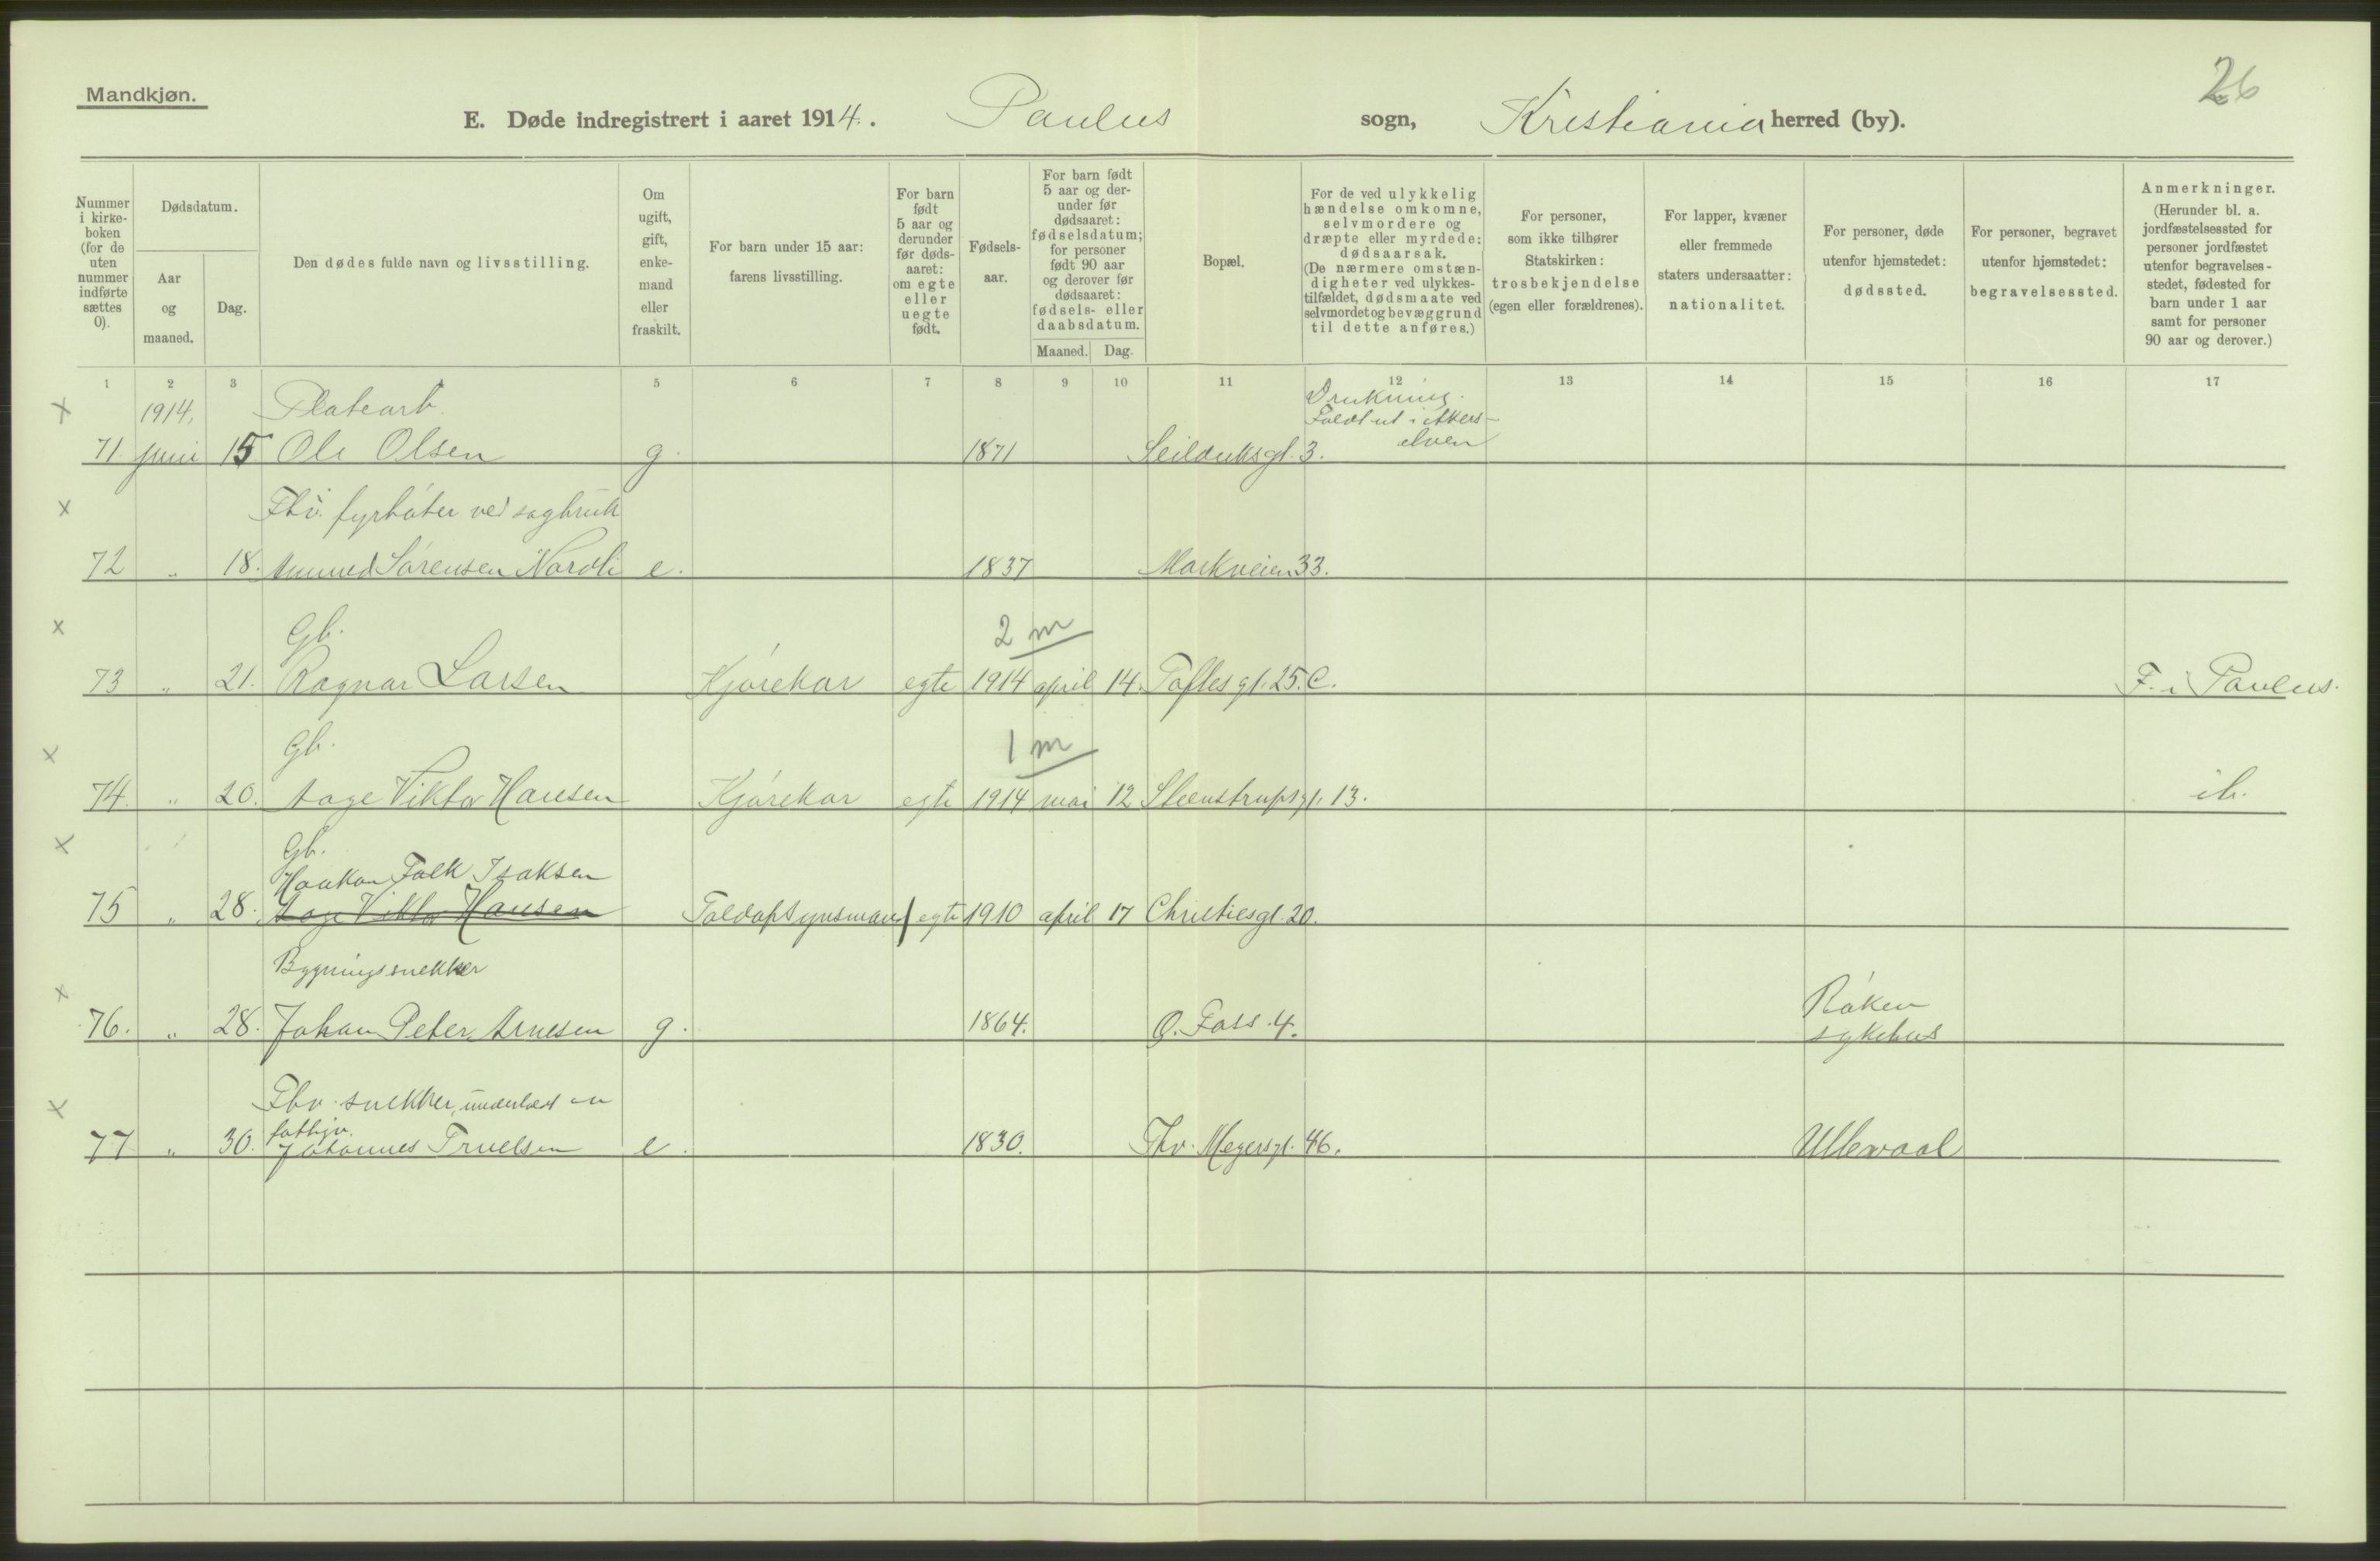 Mandkjøn.
26
E. Døde indregistrert i aaret 1914. Paulus sogn, Kristiania herred (by).
Nummer i kirke-boken (for de uten nummer indførte sættes 0).
Dødsdatum.
Aar og maaned.
Dag.
Den dødes fulde navn og livsstilling.
Om ugift, gift, enke-mand eller fraskilt.
For barn under 15 aar: farens livsstilling.
For barn født 5 aar og derunder før døds-aaret: om egte eller uegte født.
Fødsels-aar.
For barn født 5 aar og der-under før dødsaaret: fødselsdatum; for personer født 90 aar og derover før dødsaaret: fødsels- eller daabsdatum.
Maaned.
Dag.
Bopæl.
For de ved ulykkelig hændelse omkomne, selvmordere og dræpte eller myrdede: dødsaarsak. (De nærmere omstæn-digheter ved ulykkes-tilfældet, dødsmaate ved selvmordet og bevæggrund til dette anføres.)
For personer, som ikke tilhører Statskirken: trosbekjendelse (egen eller forældrenes).
For lapper, kvæner eller fremmede staters undersaatter: nationalitet.
For personer, døde utenfor hjemstedet: dødssted.
For personer, begravet utenfor hjemstedet: begravelsessted.
Anmerkninger. (Herunder bl. a. jordfæstelsessted for personer jordfæstet utenfor begravelses-stedet, fødested for barn under 1 aar samt for personer 90 aar og derover.)
1 2 3 5 6 7 8 9 10 11 12 13 14 15 16 17
x 1914, Platearb. Drukning.
Faldt ut i Akers-
elven
71 juni 15 Ole Olsen g. 1871 Seilduksgt. 3.
x Fhv. fyrbøter ved sagbruk
72 " 18. Sørensen Nordli e. 1837 Markveien 33.
x Gb. 2 m
73 " 21. Ragnar Larsen Kjørekar egte 1914 april 14. Toftesgt. 25. C. F. i Paulus.
x Gb. 1 m
74. " 20. Aage Viktor Hansen Kjørekar egte 1914 mai 12 Steenstrupsgt. 13. ib.
x Gb.
Haakon Falk Isaksen
75 " 28. Aage Viktor Hansen Toldopsynsmand egte 1910 april 17 Christiesgt. 20.
Bygningssnekker
x Røken
76. " 28. Johan Peter Arnesen g. 1864. Ø. Foss. 4. sykehus
x Fhv. snekker, understød av
fattigv.
77 " 30. Johannes Truelsen e. 1830. Thv. Meyersgt. 46. Ullevaal